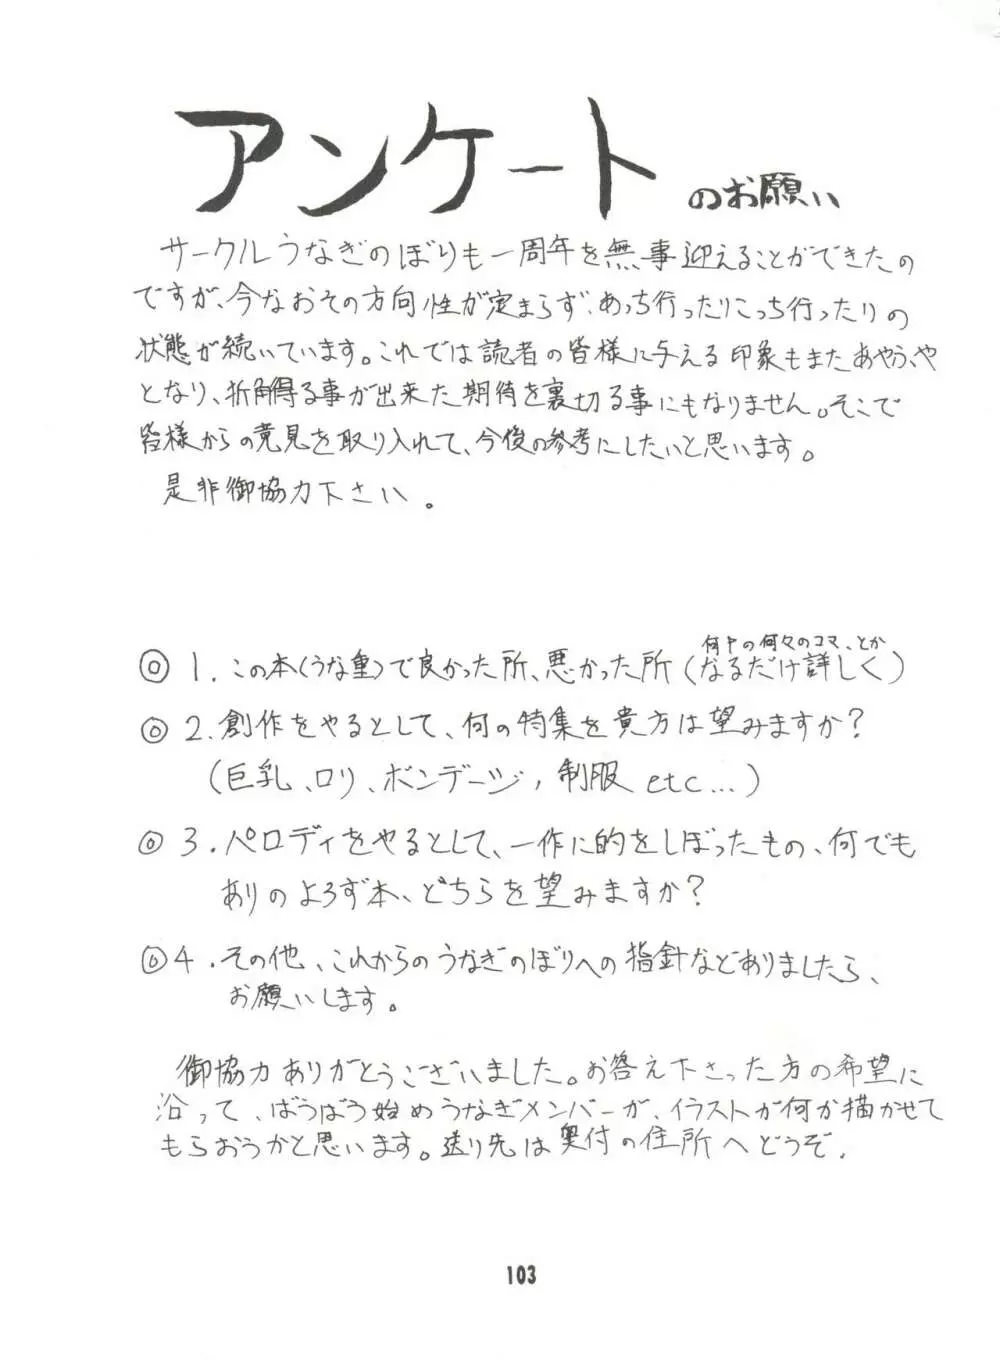 アンケートのお願い
サークルうなぎのぼりも一周年を無事迎えることができたの
ですが、今なおその方向性が定まらず、あっち行ったりこっち行ったりの
状態が続いています。これでは読者の皆様に与える印象もまたあやふや
となり、折角得る事が出来た期待を裏切る事にもなりません。そこで
皆様からの意見を取り入れて、今後の参考にしたいと思います。
是非御協力下さい。
何Pの何々のコマ、とか
◎1.この本(うな重)で良かった所、悪かった所(なるだけ詳しく)
◎2.創作をやるとして、何の特集を貴方は望みますか?
(巨乳、ロリ、ボンデージ,制服 etc...)
◎3.パロディをやるとして、一作に的をしぼったもの、何でも
ありのよろず本、どちらを望みますか?
◎4.その他、これからのうなぎのぼりへの指針などありましたら、
お願いします。
御協力ありがとうございました。お答え下さった方の希望に
沿って、ばうばう始めうなぎメンバーが、イラストか何か描かせて
もらおうかと思います。送り先は奥付の住所へどうぞ.
103